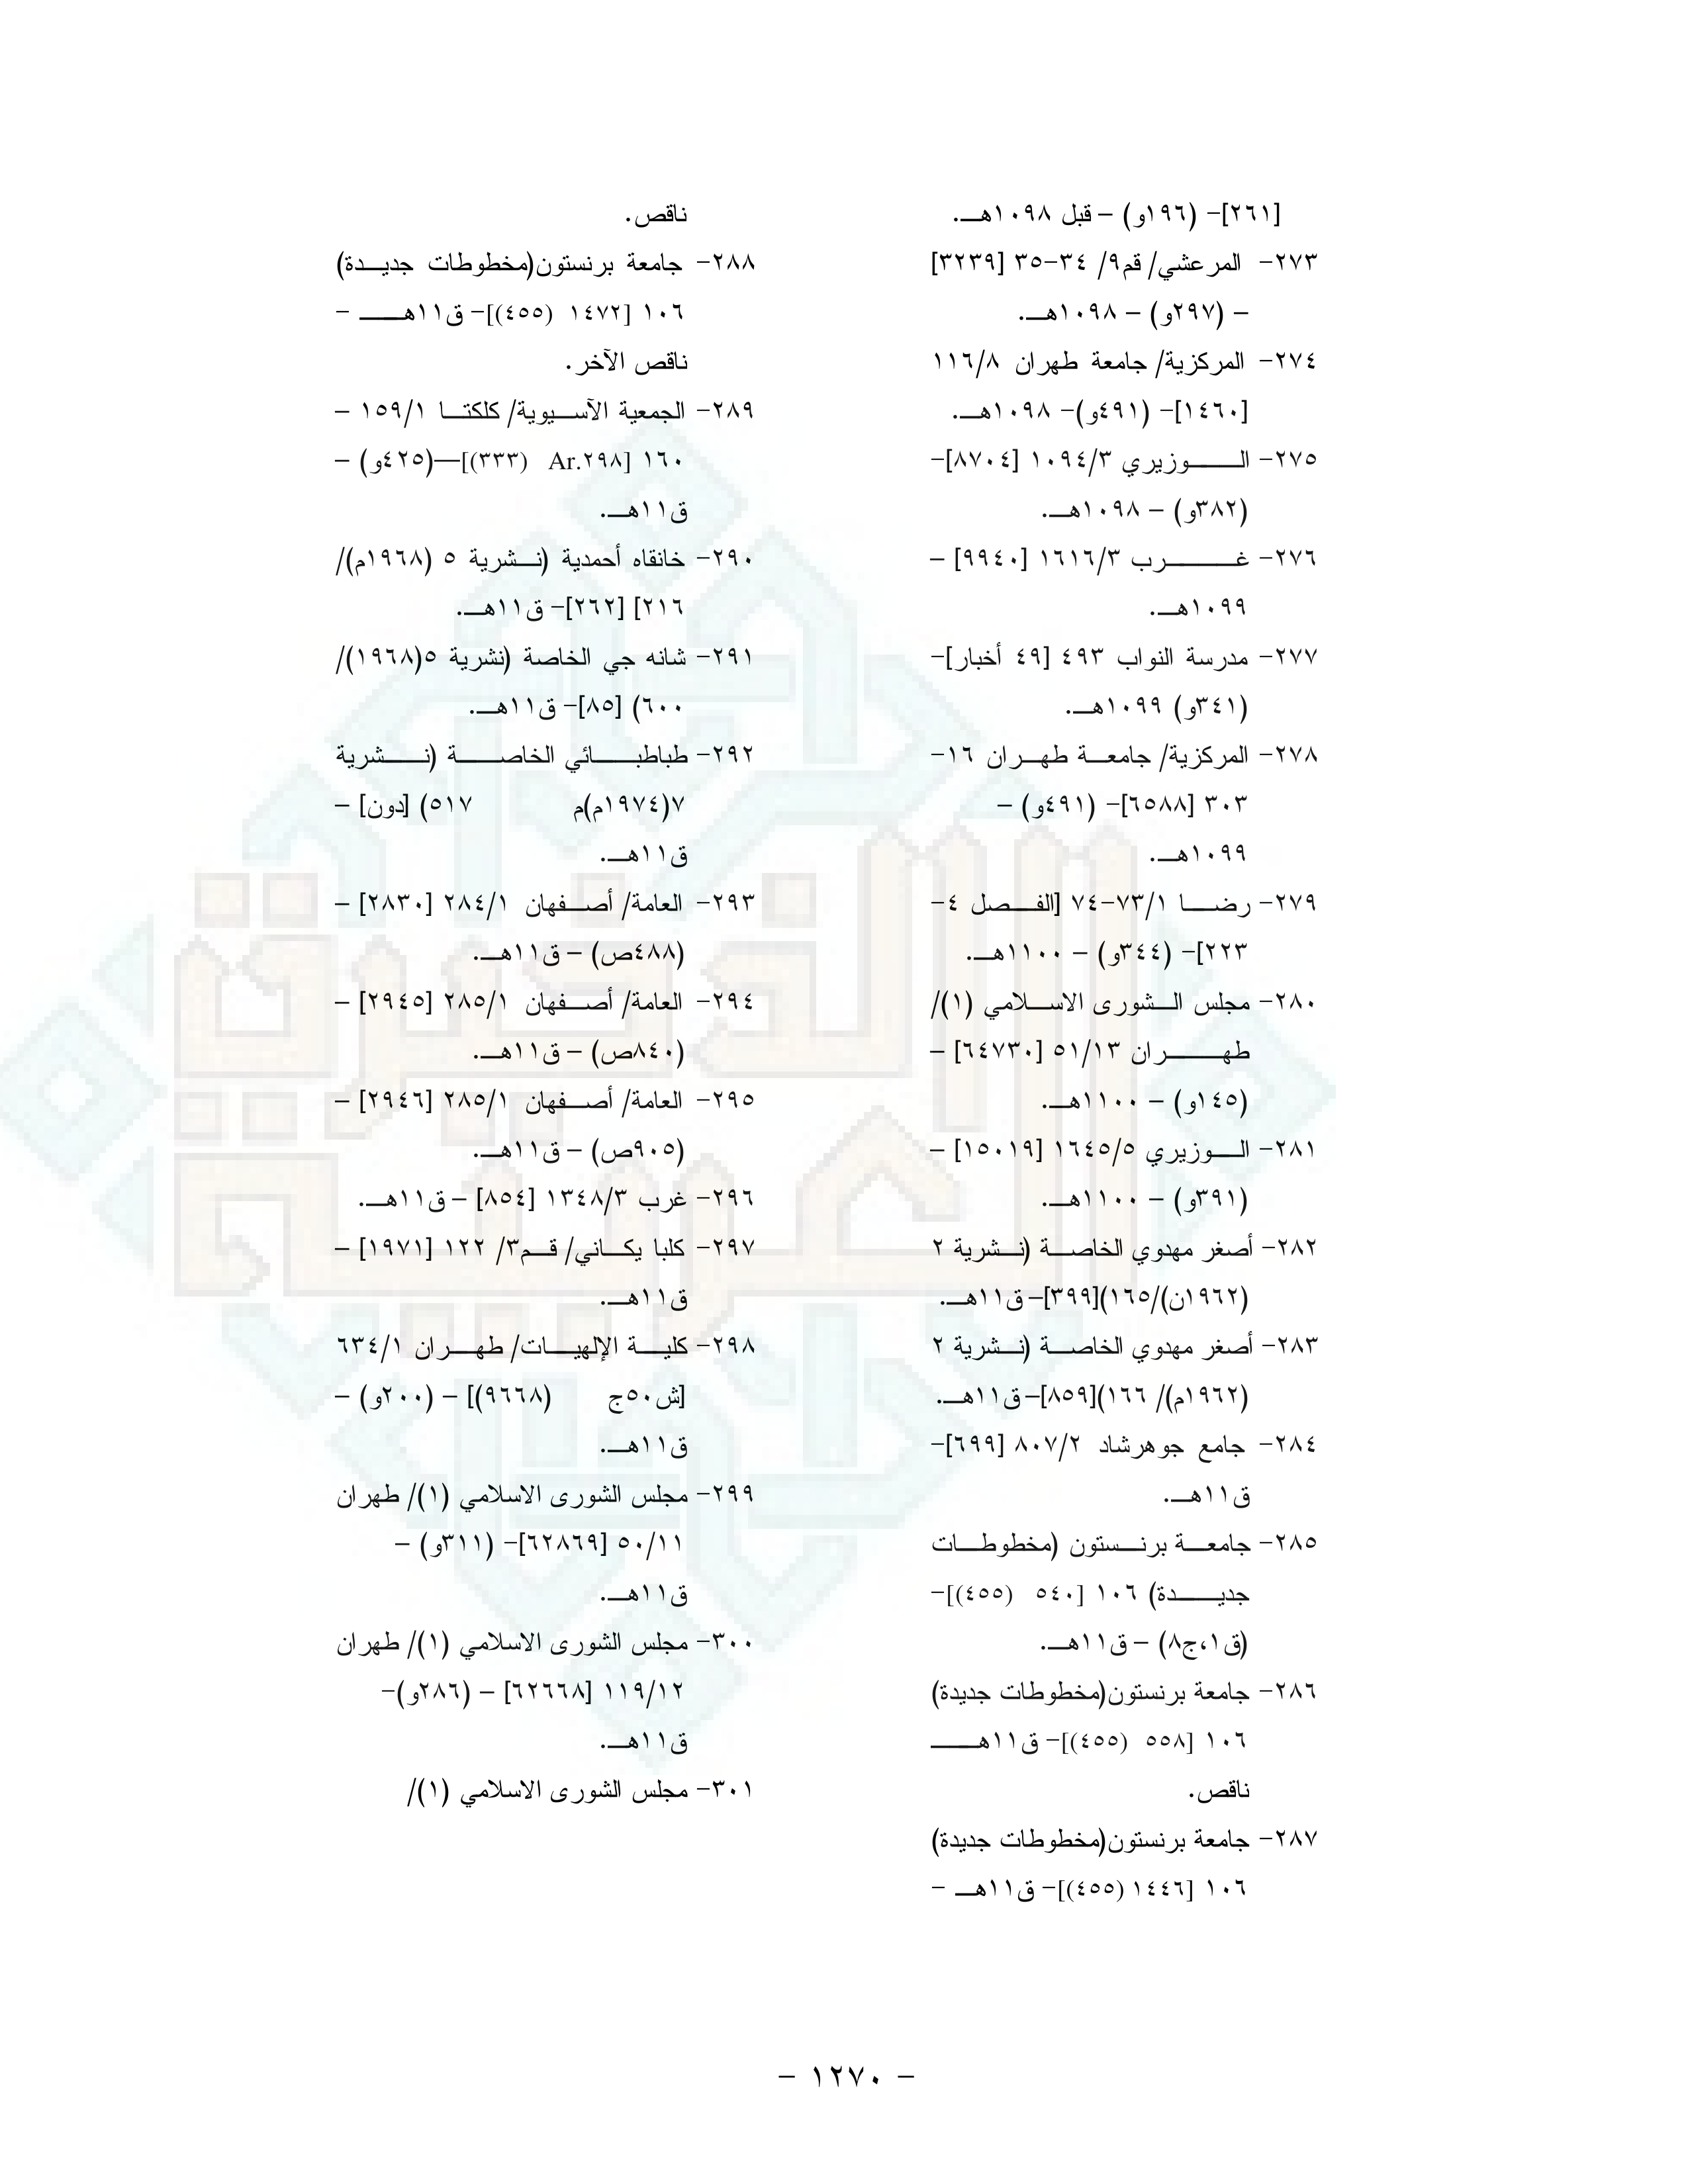 [٢٦١]- (١٩٦و) – قبل ١٠٩٨هـ.
٢٧٣- المرعشي/ قم٩/ ٣٤-٣٥ [٣٢٣٩]
– (٢٩٧و) – ١٠٩٨هـ.
٢٧٤- المركزية/ جامعة طهران ١١٦/٨
[١٤٦٠]- (٤٩١و)- ١٠٩٨هـ.
٢٧٥- الوزيري ١٠٩٤/٣ [٨٧٠٤]-
(٣٨٢و) – ١٠٩٨هـ.
٢٧٦- غرب ١٦١٦/٣ [٩٩٤٠] –
١٠٩٩هـ.
٢٧٧- مدرسة النواب ٤٩٣ [٤٩ أخبار]-
(٣٤١و) ١٠٩٩هـ.
٢٧٨- المركزية/ جامعة طهران ١٦-
٣٠٣ [٦٥٨٨]- (٤٩١و) –
١٠٩٩هـ.
٢٧٩- رضا ٧٣/١-٧٤ [الفصل ٤-
٢٢٣]- (٣٤٤و) – ١١٠٠هـ.
٢٨٠- مجلس الشورى الاسلامي (١)/
طهران ٥١/١٣ [٦٤٧٣٠] –
(١٤٥و) – ١١٠٠هـ.
٢٨١- الوزيري ١٦٤٥/٥ [١٥٠١٩] –
(٣٩١و) – ١١٠٠هـ.
٢٨٢- أصغر مهدوي الخاصة (نشرية ٢
(١٩٦٢ن)/١٦٥)[٣٩٩]- ق١١هـ.
٢٨٣- أصغر مهدوي الخاصة (نشرية ٢
(١٩٦٢م)/ ١٦٦)[٨٥٩]- ق١١هـ.
٢٨٤- جامع جوهرشاد ٨٠٧/٢ [٦٩٩]-
ق١١هـ.
٢٨٥- جامعة برنستون (مخطوطات
جديدة) ١٠٦ [٥٤٠ (٤٥٥)]-
(ق١،ج٨) – ق١١هـ.
٢٨٦- جامعة برنستون(مخطوطات جديدة)
١٠٦ [٥٥٨ (٤٥٥)]- ق١١هـ
ناقص.
٢٨٧- جامعة برنستون(مخطوطات جديدة)
١٠٦ [١٤٤٦ (٤٥٥)]- ق١١هـ -
ناقص.
٢٨٨- جامعة برنستون(مخطوطات جديدة)
١٠٦ [١٤٧٢ (٤٥٥)]- ق١١هـ -
ناقص الآخر.
٢٨٩- الجمعية الآسيوية/ كلكتا ١٥٩/١ –
١٦٠ [Ar.٢٩٨ (٣٣٣)]—(٤٢٥و) –
ق١١هـ.
٢٩٠- خانقاه أحمدية (نشرية ٥ (١٩٦٨م)/
٢١٦] [٢٦٢]- ق١١هـ.
٢٩١- شانه جي الخاصة (نشرية ٥(١٩٦٨)/
٦٠٠) [٨٥]- ق١١هـ.
٢٩٢- طباطبائي الخاصة (نشرية
٧(١٩٧٤م)م ٥١٧) [دون] –
ق١١هـ.
٢٩٣- العامة/ أصفهان ٢٨٤/١ [٢٨٣٠] –
(٤٨٨ص) – ق١١هـ.
٢٩٤- العامة/ أصفهان ٢٨٥/١ [٢٩٤٥] –
(٨٤٠ص) – ق١١هـ.
٢٩٥- العامة/ أصفهان ٢٨٥/١ [٢٩٤٦] –
(٩٠٥ص) – ق١١هـ.
٢٩٦- غرب ١٣٤٨/٣ [٨٥٤] – ق١١هـ.
٢٩٧- كلبا يكاني/ قم٣/ ١٢٢ [١٩٧١] –
ق١١هـ.
٢٩٨- كلية الإلهيات/ طهران ٦٣٤/١
[ش٥٠ج (٩٦٦٨)] – (٢٠٠و) –
ق١١هـ.
٢٩٩- مجلس الشورى الاسلامي (١)/ طهران
٥٠/١١ [٦٢٨٦٩]- (٣١١و) –
ق١١هـ.
٣٠٠- مجلس الشورى الاسلامي (١)/ طهران
١١٩/١٢ [٦٢٦٦٨] – (٢٨٦و)-
ق١١هـ.
٣٠١- مجلس الشورى الاسلامي (١)/
- ١٢٧٠ -